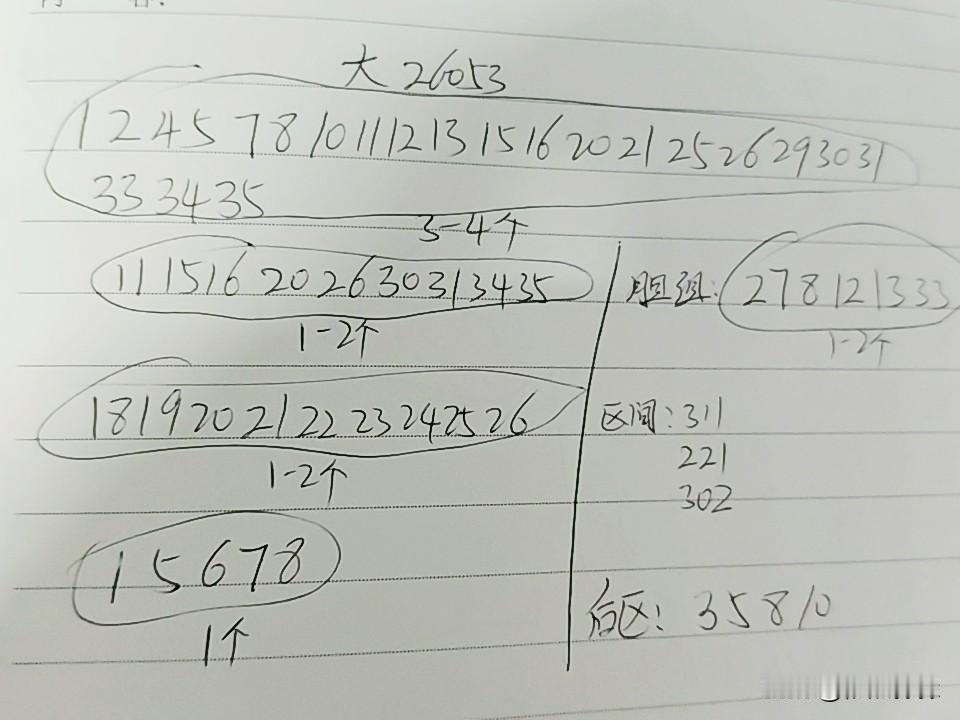 大26053
1 2 4 5 7 8 10 11 12 13 15 16 20 21 25 26 29 30 31
33 34 35
3-4个
11 15 16 20 26 30 31 34 35
1-2个
18 19 20 21 22 23 24 25 26
1-2个
1 5 6 7 8
1个
胆组: 2 7 8 12 13 33
1-2个
区间:311
221
302
后区: 3 5 8 10